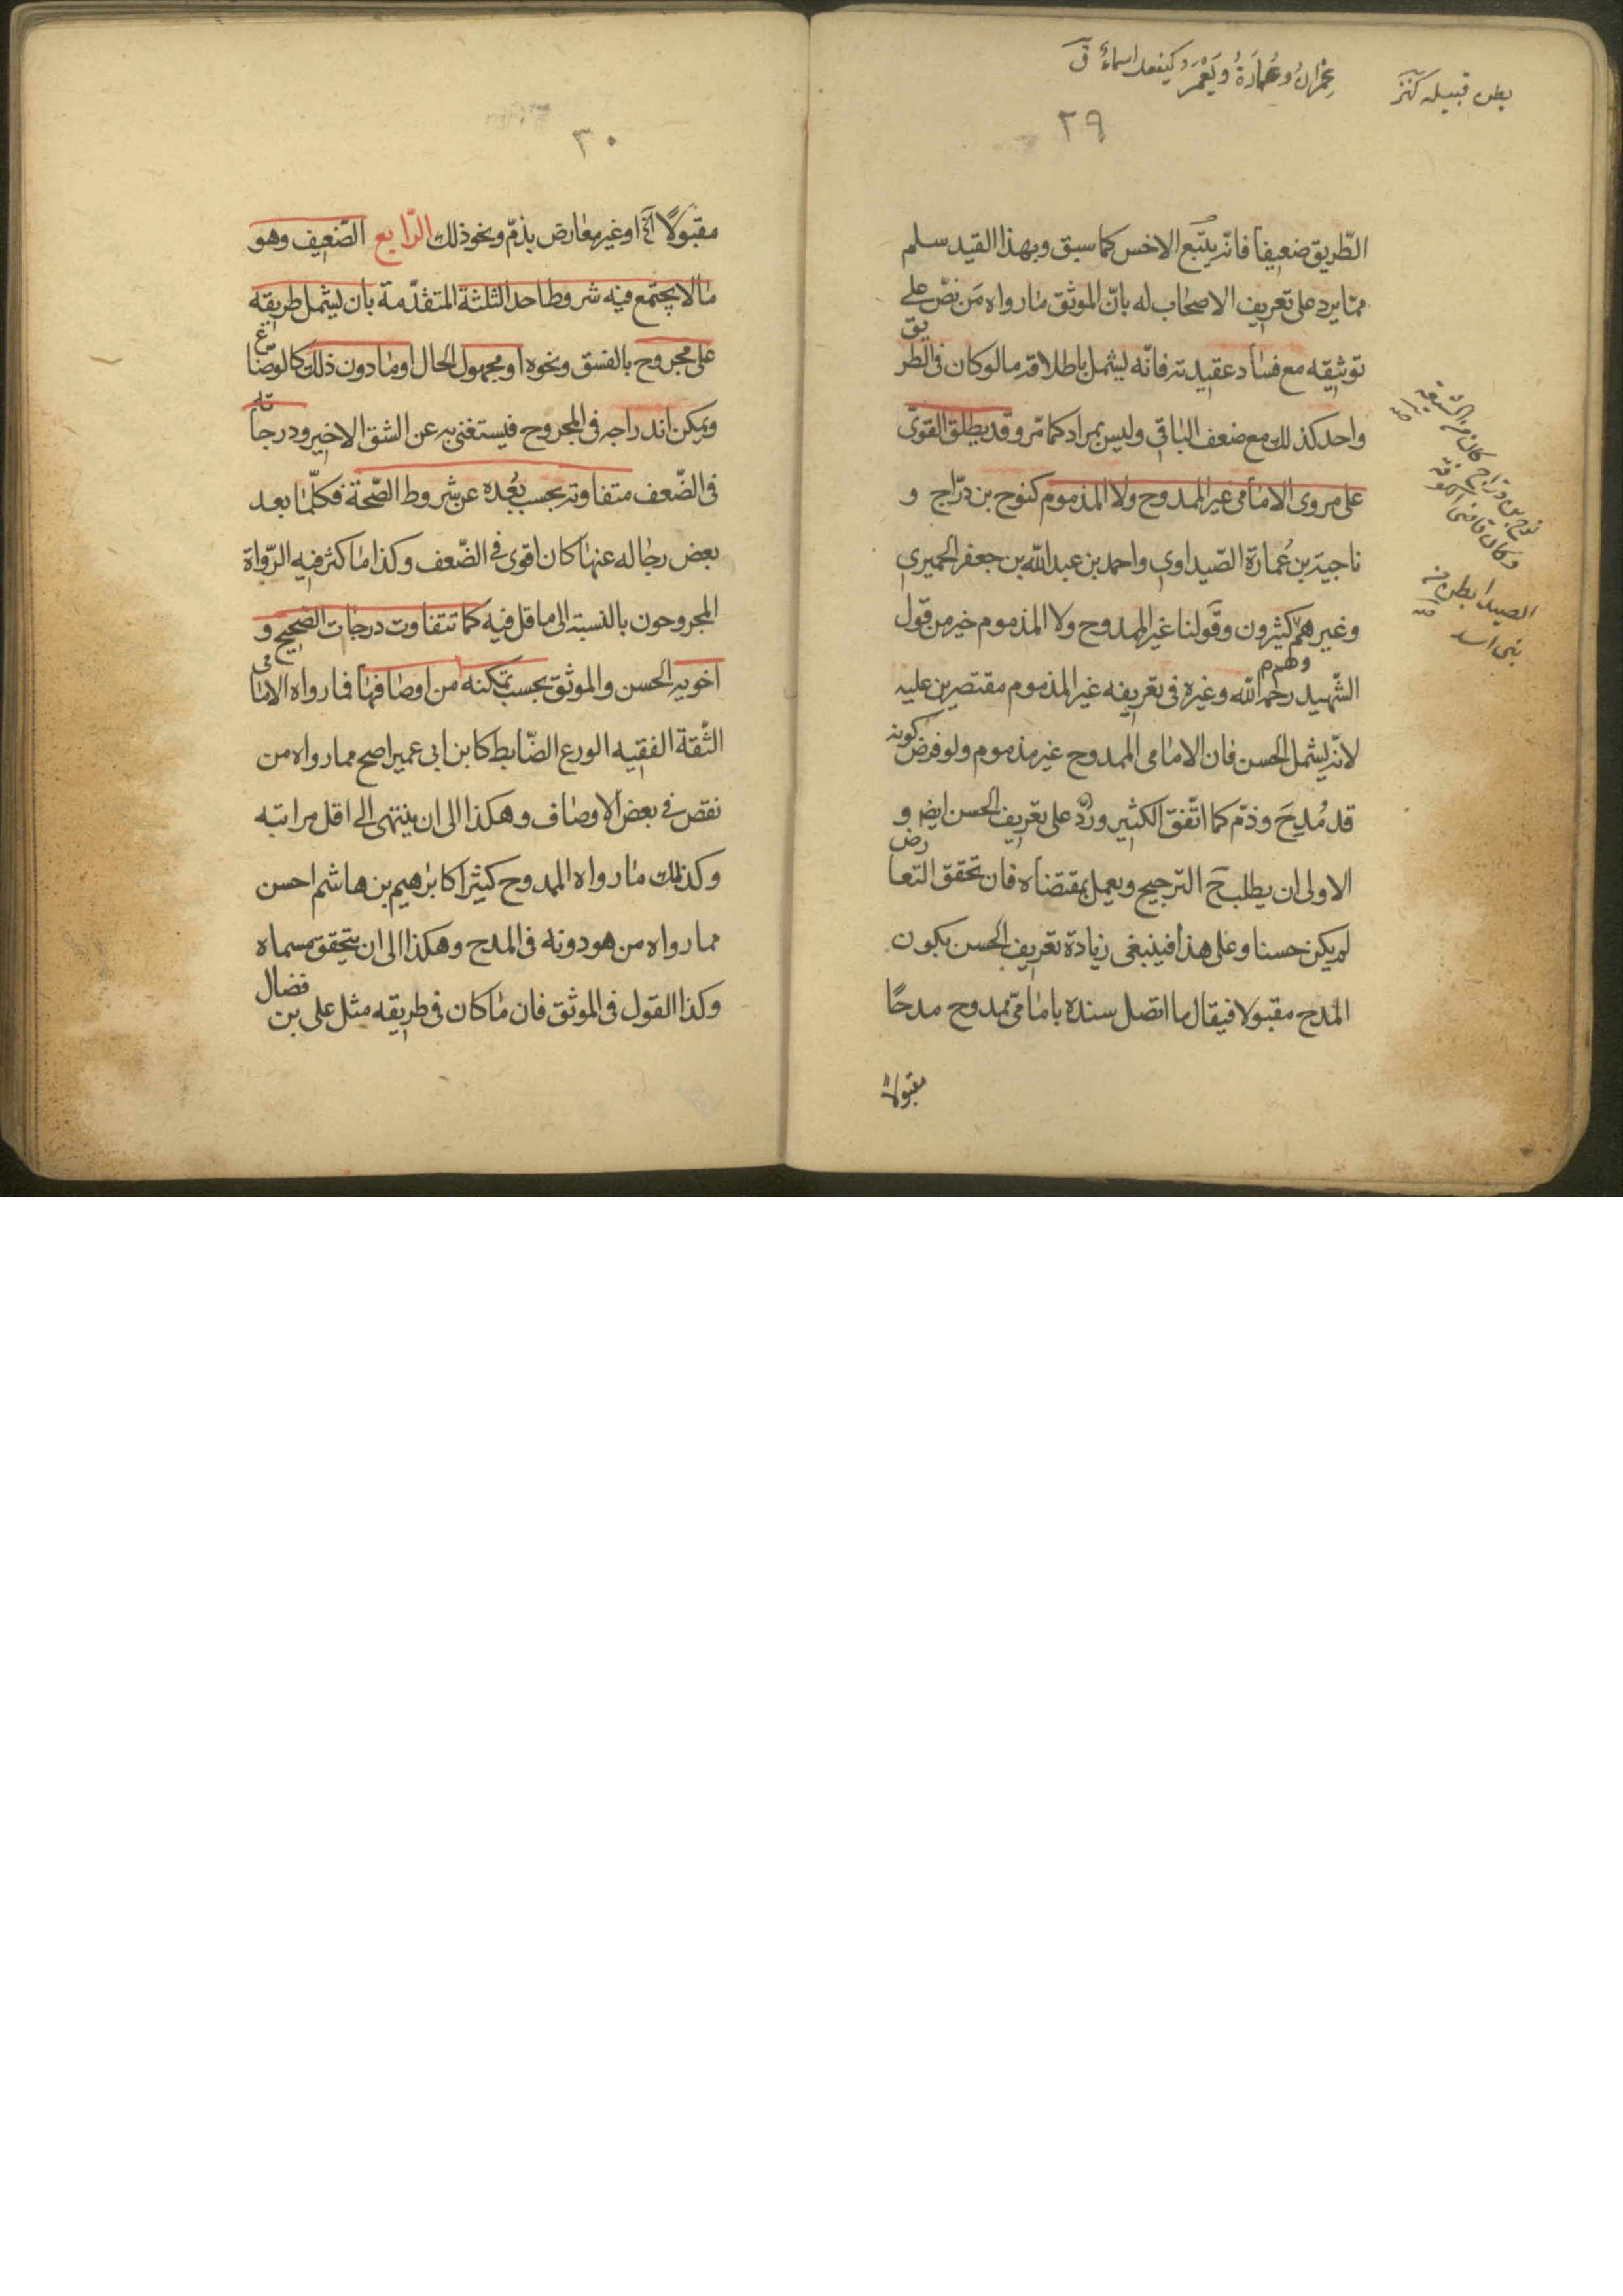 بطن قبیله
عِمْرانُ وعُمارَةُ ويَعْمَرُ كيفعل اسماءٌ ق
٢٩
الطّريق ضعيفا فانّه يتّبع الاخس كما سبق وبهذا القيد سلم
ممّا يرد على تعريف الاصحاب له بانّ الموثق ما رواه مَن نصّ على
توثيقه مع فساد عقيدته فانّه يشمل باطلاقه ما لو كان فى الطريق
واحد كذلك مع ضعف الباقى وليس بمراد كما مرّ وقد يطلق القوىّ
على مروى الامامى غير الممدوح ولا المذموم كنوح بن درّاج و
ناجية بن عُمارة الصّيداوى واحمد بن عبد الله بن جعفر الحميرى
وغيرهم كثيرون وقولنا غير الممدوح ولا المذموم خير من قول
وهم
الشّهيد رحمه الله وغيره فى تعريفه غير المذموم مقتصرين عليه
لانّه يشمل الحسن فان الامامى الممدوح غير مذموم ولو فرض كونه
قد مُدِحَ وذمّ كما اتّفق لكثير ورُدّ على تعريف الحسن ايضا و
الاولى ان يطلب ح الترجيح ويعمل بمقتضاه فان تحقق التعارض
لم يكن حسنا وعلى هذا فينبغى زيادة تعريف الحسن بكون
المدح مقبولا فيقال ما اتصل سنده بامامىّ ممدوح مدحًا
مقبولاً
نوح بن درّاج كان من الشيعة
وكان قاضى الكوفة
الصيدا بطن من
بنى اسد
٣٠
مقبولًا آخ او غير معارض بذمّ ونحو ذلك الرّابع الضّعيف وهو
ما لا يجتمع فيه شروط احد الثلثة المتقدّمة بان يشمل طريقه
على مجروح بالفسق ونحوه او مجهول الحال او ما دون ذلك كالوضّاع
ويمكن اندراجه فى المجروح فيستغنى به عن الشق الاخير ودرجاته
فى الضّعف متفاوتة بحسب بُعده عن شروط الصّحة فكلّما بعد
بعض رجاله عنها كان اقوى فى الضّعف وكذا ما كثر فيه الرّواة
المجروحون بالنسبة الى ما قل فيه كما تتفاوت درجات الصحيح و
اخويه الحسن والموثق بحسب تمكنه من اوصافها فما رواه الامامى
الثّقة الفقيه الورع الضّابط كابن ابى عمير اصح مما رواه من
نقص فى بعض الاوصاف وهكذا الى ان ينتهى الى اقل مراتبه
وكذلك ما رواه الممدوح كثيرا كابرٰهيم بن هاشم احسن
مما رواه من هو دونه فى المدح وهكذا الى ان يتحقق مسماه
وكذا القول فى الموثق فان ما كان فى طريقه مثل على بن فضال